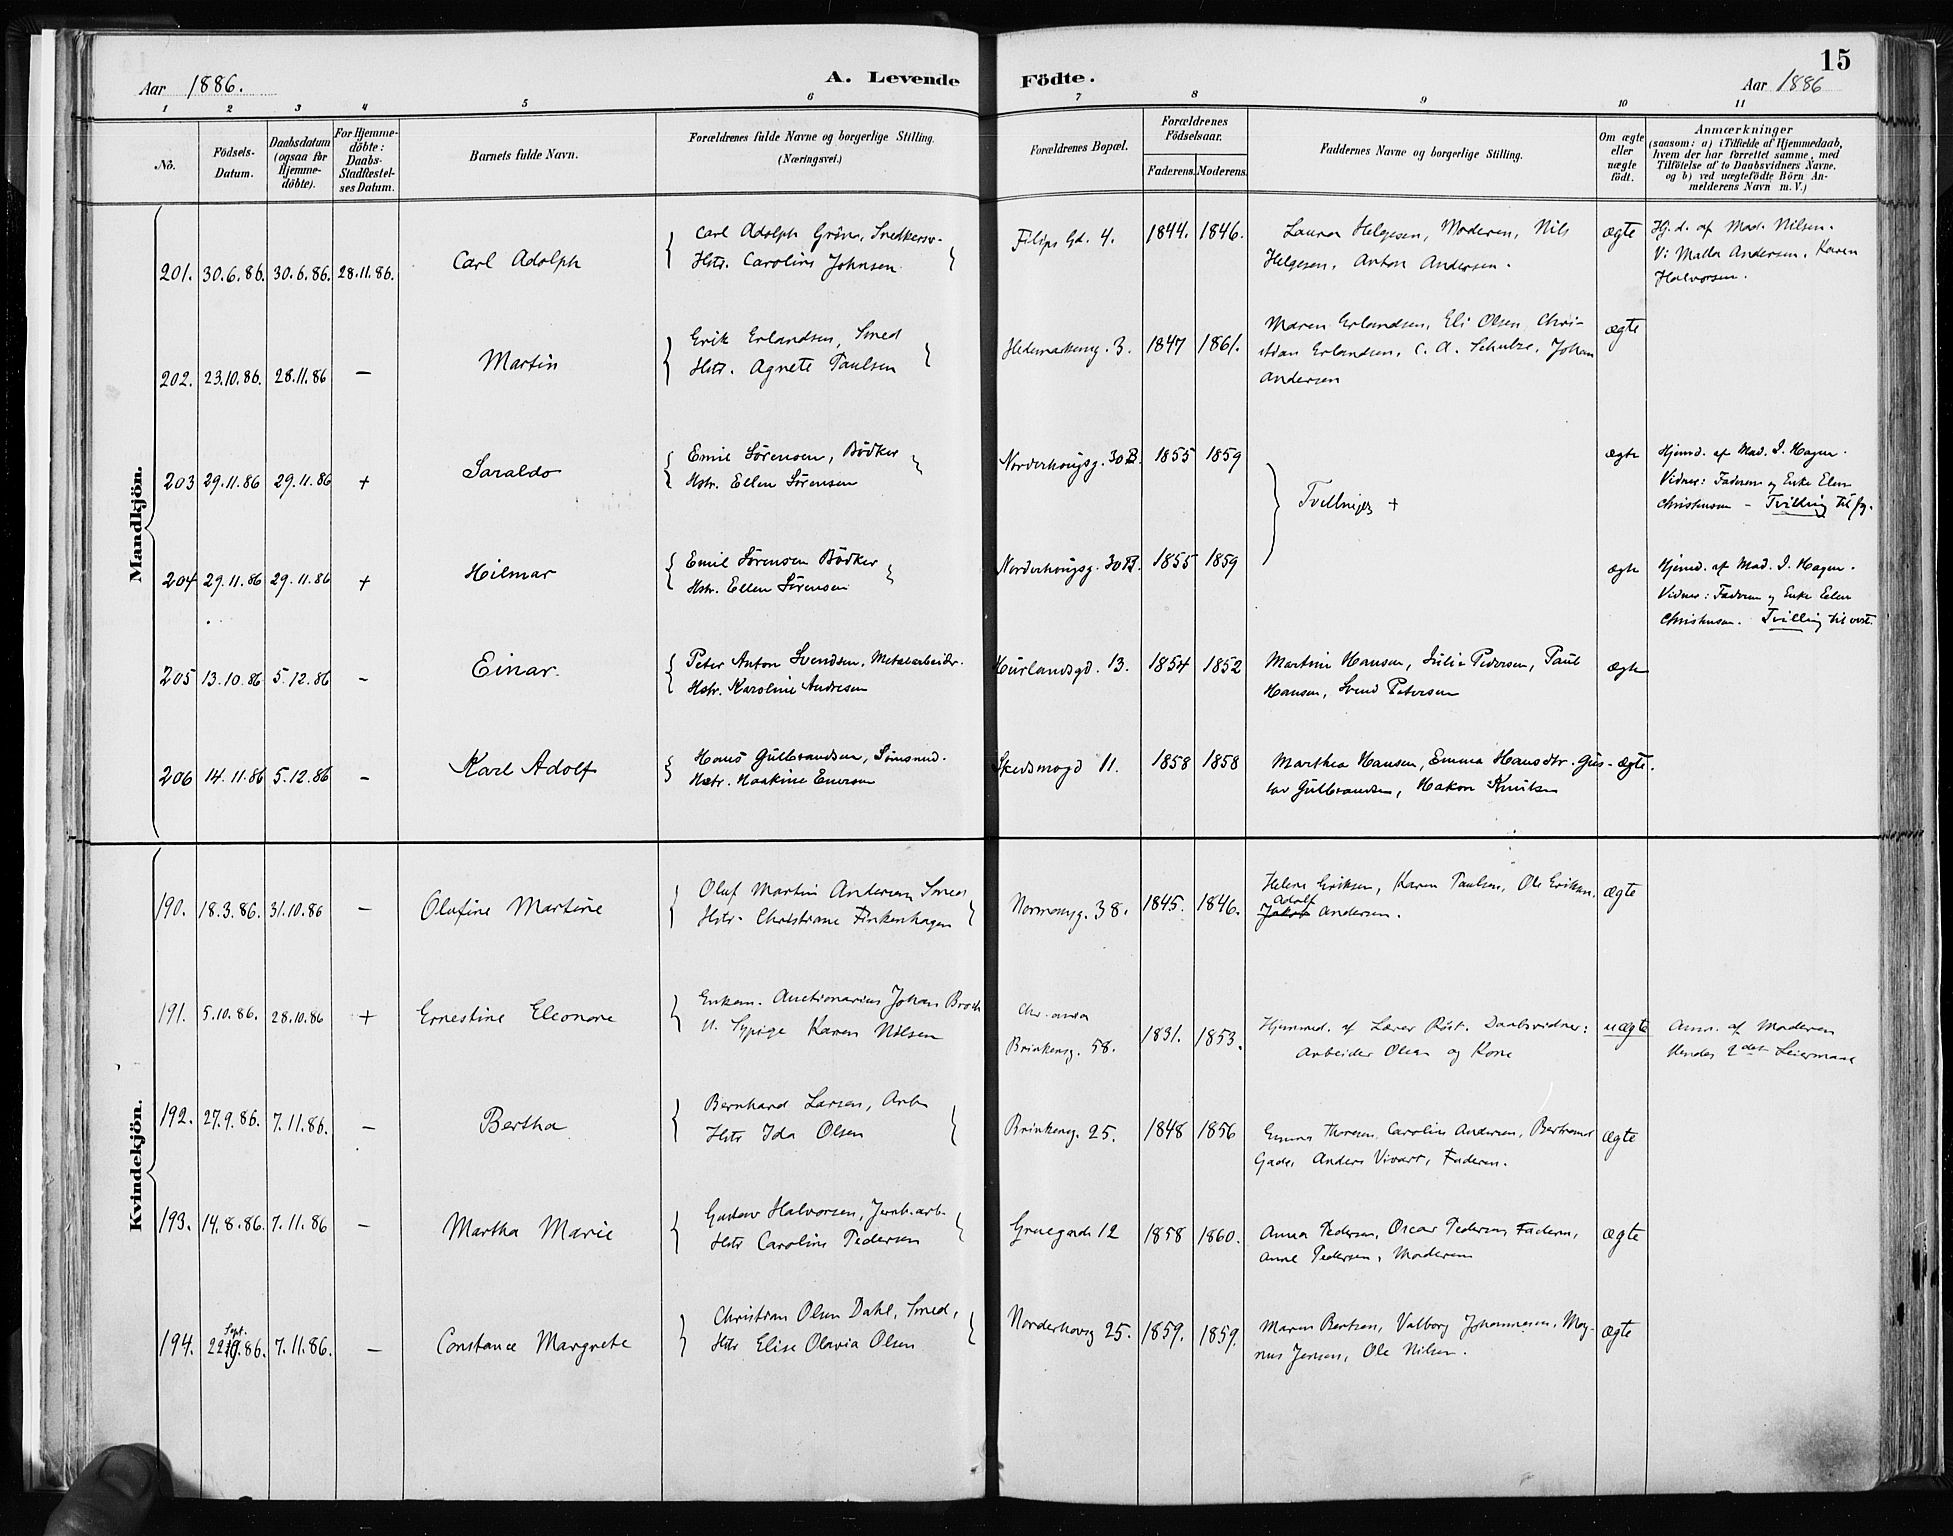 Aar 1886.
A. Levende Födte.
15
Aar 1886
1 2 3 4 5 6 7 8 9 10 11
No.
Födsels-Datum.
Daabsdatum (ogsaa for Hjemmedöbte).
For Hjemmedöbte: Daabs-Stadfæstelses Datum.
Barnets fulde Navn.
Forældrenes fulde Navne og borgerlige Stilling.
(Næringsvei.)
Forældrenes Bopæl.
Forældrenes Födselsaar.
Faderens. Moderens.
Faddernes Navne og borgerlige Stilling.
Om ægte eller uægte födt.
Anmærkninger
(saasom: a) i Tilfælde af Hjemmedaab,
hvem der har forrettet samme, med
Tilföielse af to Daabsvidners Navne.
og b) ved uægtefödte Börn An-
melderens Navn m. V.)
Mandkjön.
201. 30.6.86. 30.6.86. 28.11.86. Carl Adolph
Carl Adolph Grön, Snedkersv.
Hstr. Caroline Johnsen
Filips Gd. 4. 1844. 1846.
Laura Helgesen, Moderen, Nils
Helgesen, Anton Andersen.
ægte
Hj.d. af Mad. Nilsen.
V: Malla Andersen, Karen
Halvorsen.
202. 23.10.86. 28.11.86 — Martin
Erik Erlandsen, Smed
Hstr. Agnete Paulsen
Hedemarkeng. 3. 1847 1861.
Maren Erlandsen, Eli Olsen, Chri-
stian Erlandsen, C. A. Schulze, Johan
Andersen
ægte
203 29.11.86 29.11.86 + Saraldo
Emil Sörensen, Bödker
Hstr. Ellen Sörensen
Norderhougsg. 30B. 1855 1859
Tvillinger +
ægte
Hjemd. af Mad. I. Hagen.
Vidner: Faderen og Enke Elen
Christensen – Tvilling til fg.
204 29.11.86 29.11.86 + Hilmar
Emil Sörensen Bödker
Hstr. Ellen Sörensen
Norderhougsg. 30B. 1855 1859
ægte
Hjemd. af Mad. I. Hagen.
Vidner: Faderen og Enke Elen
Christensen. Tvilling til ovst.
205 13.10.86 5.12.86 – Einar.
Peter Anton Svendsen, Metalarbeidr.
Hstr. Karoline Andresen
Hurlandsgd. 13. 1854 1852
Martine Hansen, Julie Pedersen, Paul
Hansen, Svend Petersen
ægte
206 14.11.86 5.12.86 – Karl Adolf
Hans Gulbrandsen, Tömmermd.
Hstr. Haakine Enersen
Skedsmogd 11. 1858 1858
Marthea Hansen, Emma Hansdtr. Gus-
tav Gulbrandsen, Hakon Knutsen
ægte.
Kvindekjön.
190. 18.3.86. 31.10.86 – Olufine Martine
Oluf Martin Andersen Smed
Hstr. Christiane Finkenhagen
Normansg. 38. 1845. 1846.
Helene Eriksen, Karen Paulsen, Ole Eriksen,
Adolf
Jakob Andersen.
ægte
191. 5.10.86. 28.10.86 + Ernestine Eleonore
Enkem. Auctionarius Johan Broch
U. Sypige Karen Nilsen
Chr.ania
Brinkensg. 58. 1831. 1853.
Hjemmed. af Lærer Röst. Daabsvidner:
Arbeider Olsen og Kone
uægte
Anm. af Moderen
Hendes 2det Leiermaal
192. 27.9.86. 7.11.86. – Bertha
Bernhard Larsen, Arb.
Hstr Ida Olsen
Brinkeng. 25. 1848 1856
Emma Thoresen, Caroline Andersen, Bertrand
Gade, Anders Vivart, Faderen.
ægte
193. 14.8.86. 7.11.86 – Martha Marie
Gustav Halvorsen, Jernb.arb.
Hstr Caroline Pedersen
Gruegade 12 1858 1860.
Anna Pedersen, Oscar Pedersen, Faderen,
Anne Pedersen, Moderen
ægte
194. Sept.
22.9.86. 7.11.86. – Constance Margrete
Christian Olsen Dahl, Smed,
Hstr Elise Olavia Olsen
Norderhovsg 25. 1859. 1859.
Maren Bentsen, Valborg Johannesen, Mag-
nus Jensen, Ole Nilsen.
ægte